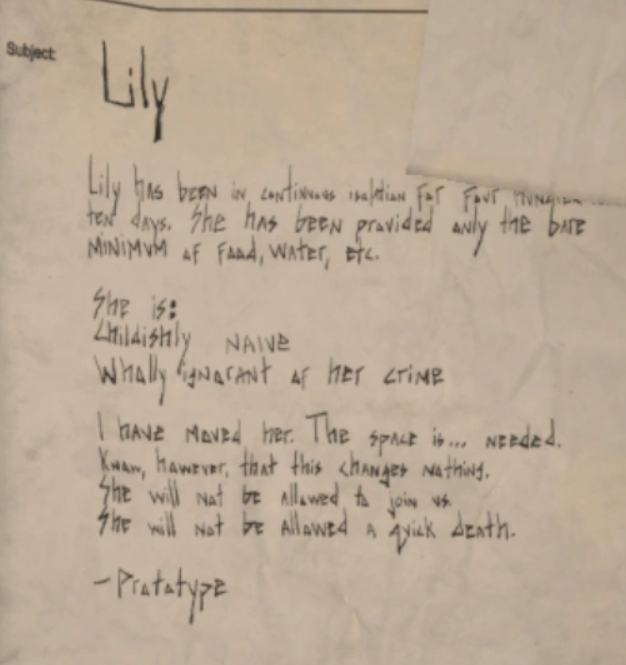 Subject:
Lily
Lily has been in continuous isolation for four hundred
ten days. She has been provided only the bare
minimum of food, water, etc.
She is:
Childishly naive
Wholly ignorant of her crime
I have moved her. The space is... needed.
Know, however, that this changes nothing.
She will not be allowed to join us.
She will not be allowed a quick death.
-Prototype